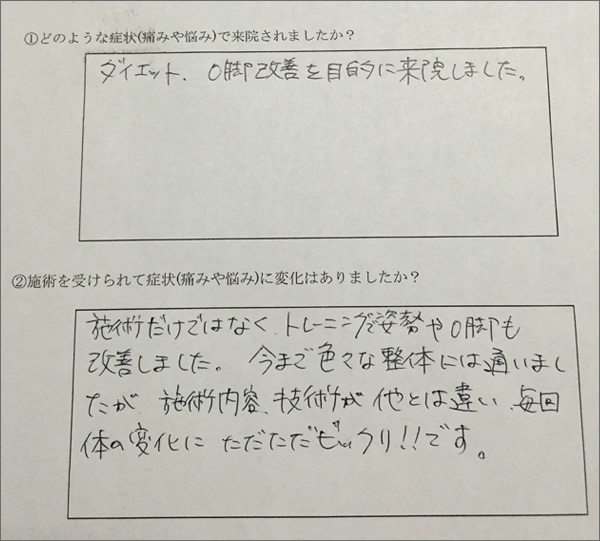 ①どのような症状(痛みや悩み)で来院されましたか？
ダイエット、O脚改善を目的に来院しました。
②施術を受けられて症状(痛みや悩み)に変化はありましたか？
施術だけではなく、トレーニングで姿勢やO脚も
改善しました。今まで色々な整体には通いまし
たが、施術内容、技術が他とは違い、毎回
体の変化に ただただびっくり!!です。